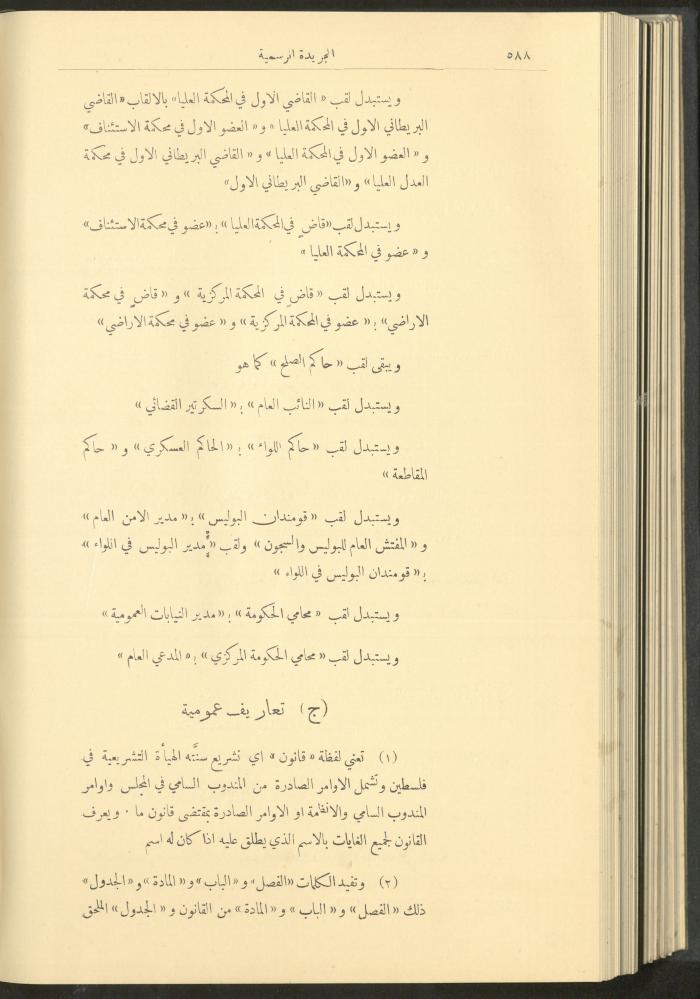 ٥٨٨
الجريدة الرسمية
ويستبدل لقب « القاضي الاول في المحكمة العليا» بالالقاب «القاضي
البريطاني الاول في المحكمة العليا » و« العضو الاول في محكمة الاستئناف»
و « العضو الاول في المحكمة العليا » و « القاضي البريطاني الاول في محكمة
العدل العليا» و«القاضي البريطاني الاول»
ويستبدل لقب «قاضٍ في المحكمة العليا » بـ «عضو في محكمة الاستئناف»
و « عضو في المحكمة العليا »
ويستبدل لقب « قاضٍ في المحكمة المركزية » و « قاضٍ في محكمة
الاراضي» بـ « عضو في المحكمة المركزية » و « عضو في محكمة الاراضي»
ويبقى لقب « حاكم الصلح » كما هو
ويستبدل لقب « النائب العام » بـ « السكرتير القضائي »
ويستبدل لقب « حاكم اللواء » بـ « الحاكم العسكري » و « حاكم
المقاطعة »
ويستبدل لقب « قومندان البوليس » بـ « مدير الامن العام »
و « المفتش العام للبوليس والسجون » ولقب « مدير البوليس في اللواء »
بـ « قومندان البوليس في اللواء »
ويستبدل لقب « محامي الحكومة » بـ « مدير النيابات العمومية »
ويستبدل لقب « محامي الحكومة المركزي » بـ « المدعي العام »
(ج) تعاريف عمومية
(١) تعني لفظة « قانون » اي تشريع سنَّته الهيأة التشريعية في
فلسطين وتشمل الاوامر الصادرة من المندوب السامي في المجلس واوامر
المندوب السامي والانظمة او الاوامر الصادرة بمقتضى قانون ما . ويعرف
القانون لجميع الغايات بالاسم الذي يطلق عليه اذا كان له اسم
(٢) وتفيد الكلمات «الفصل» و « الباب » و « المادة » و « الجدول »
ذلك « الفصل » و « الباب » و « المادة » من القانون و « الجدول » الملحق